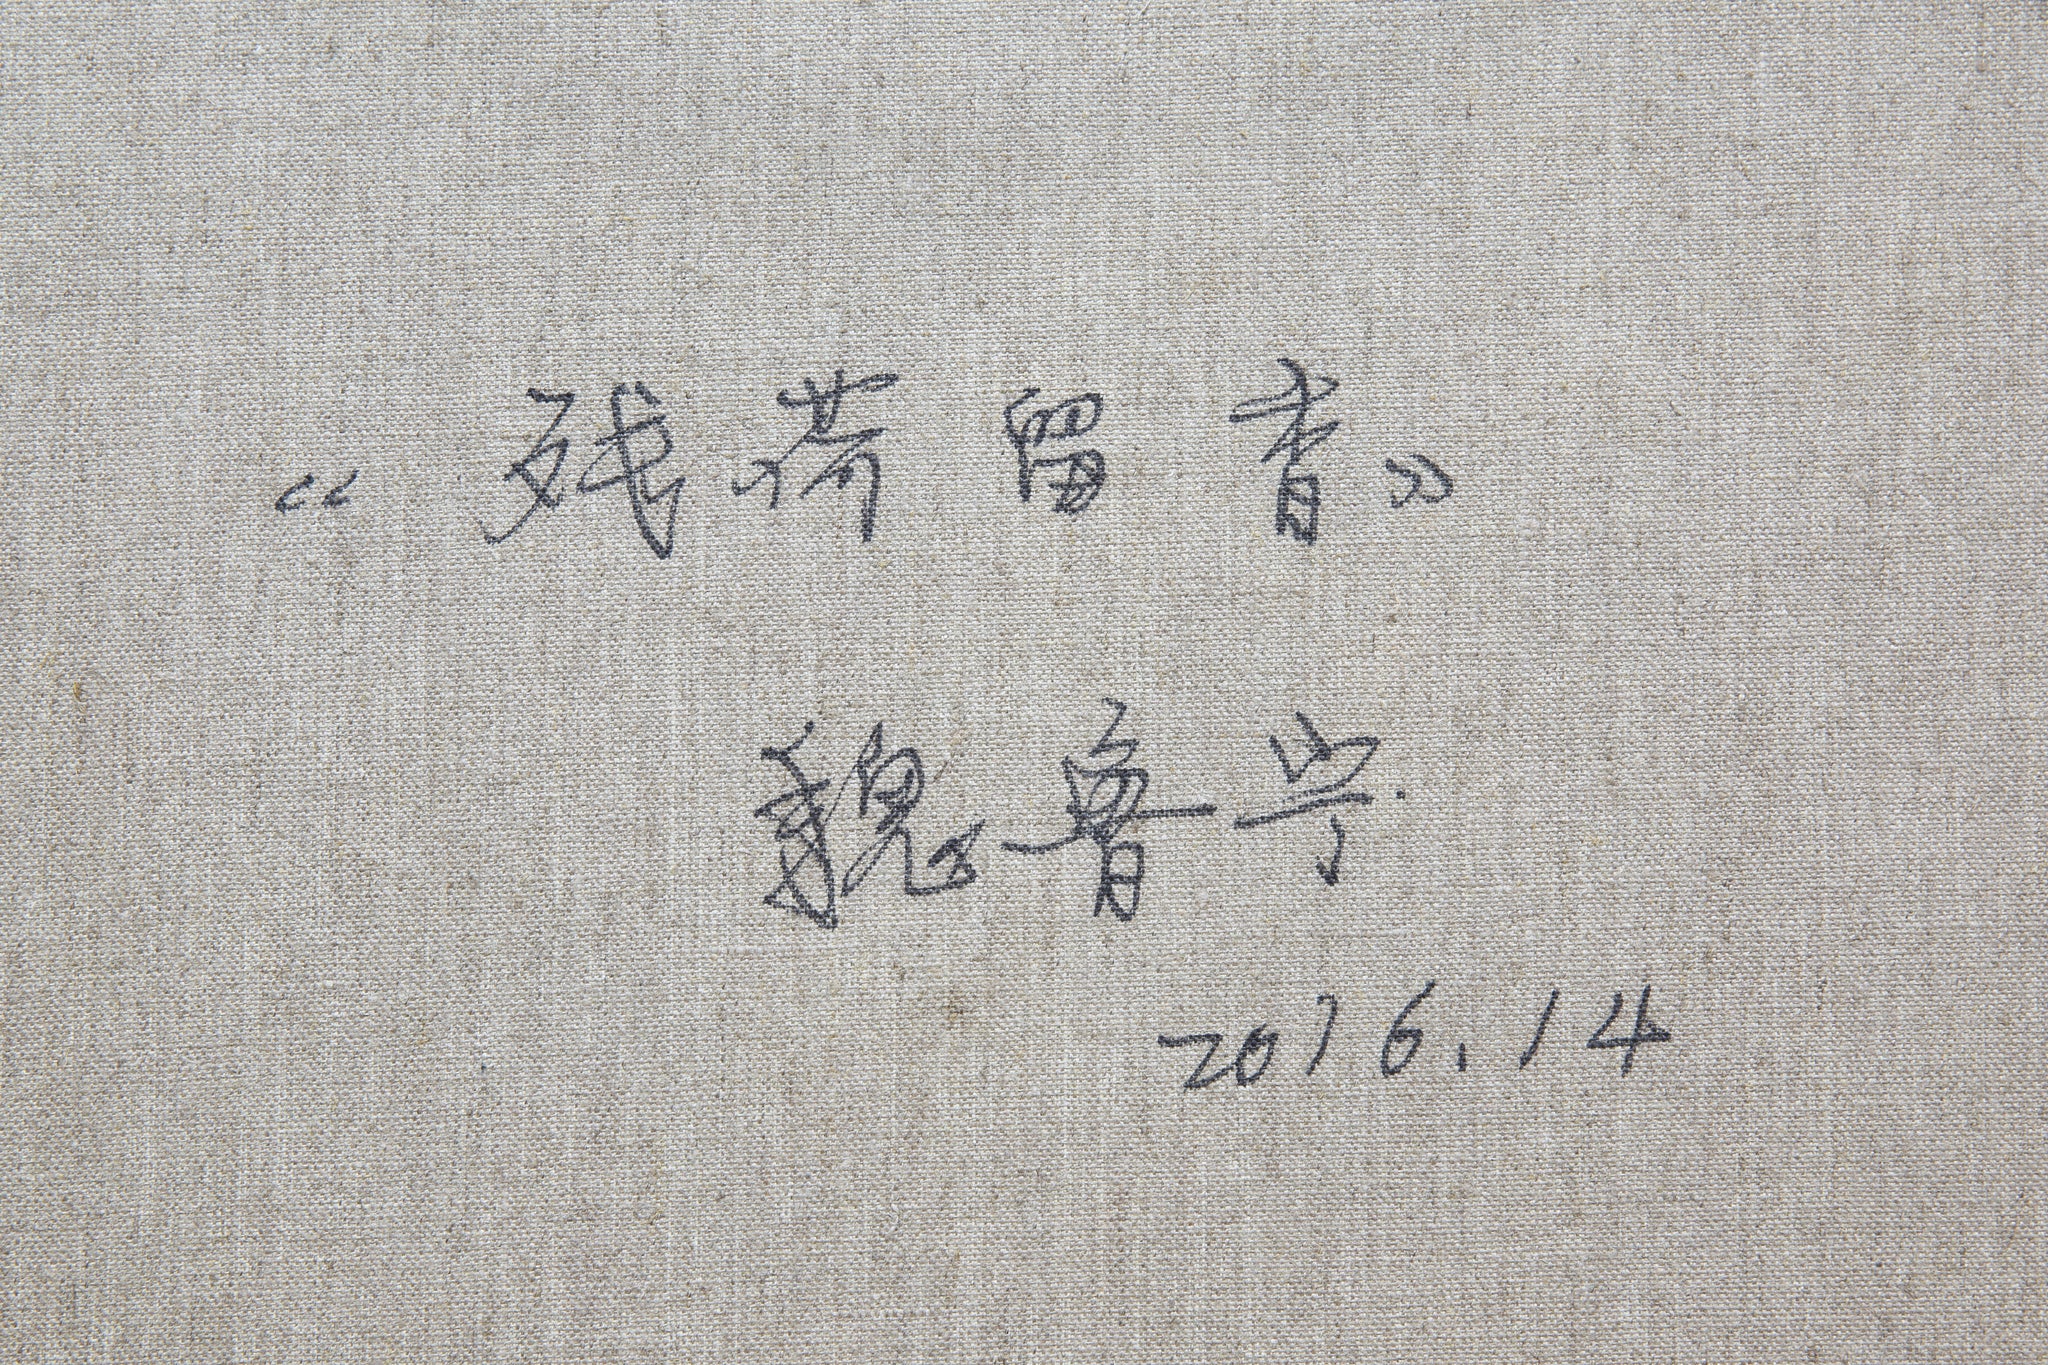 《残荷留香》
魏鲁宁
2016.14